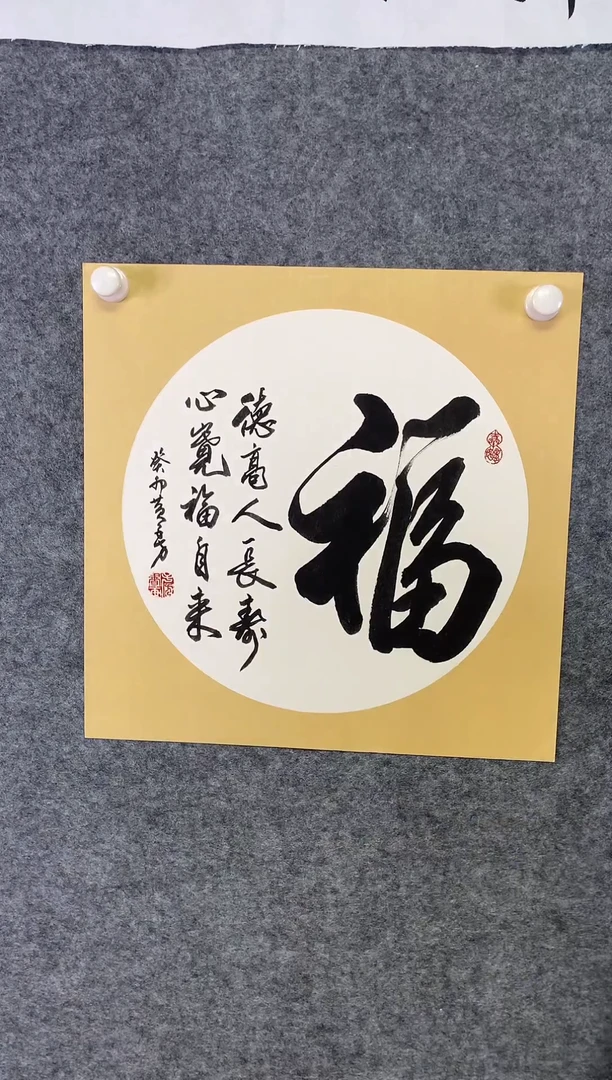 福
德高人長壽
心寬福自来
癸卯黄勇